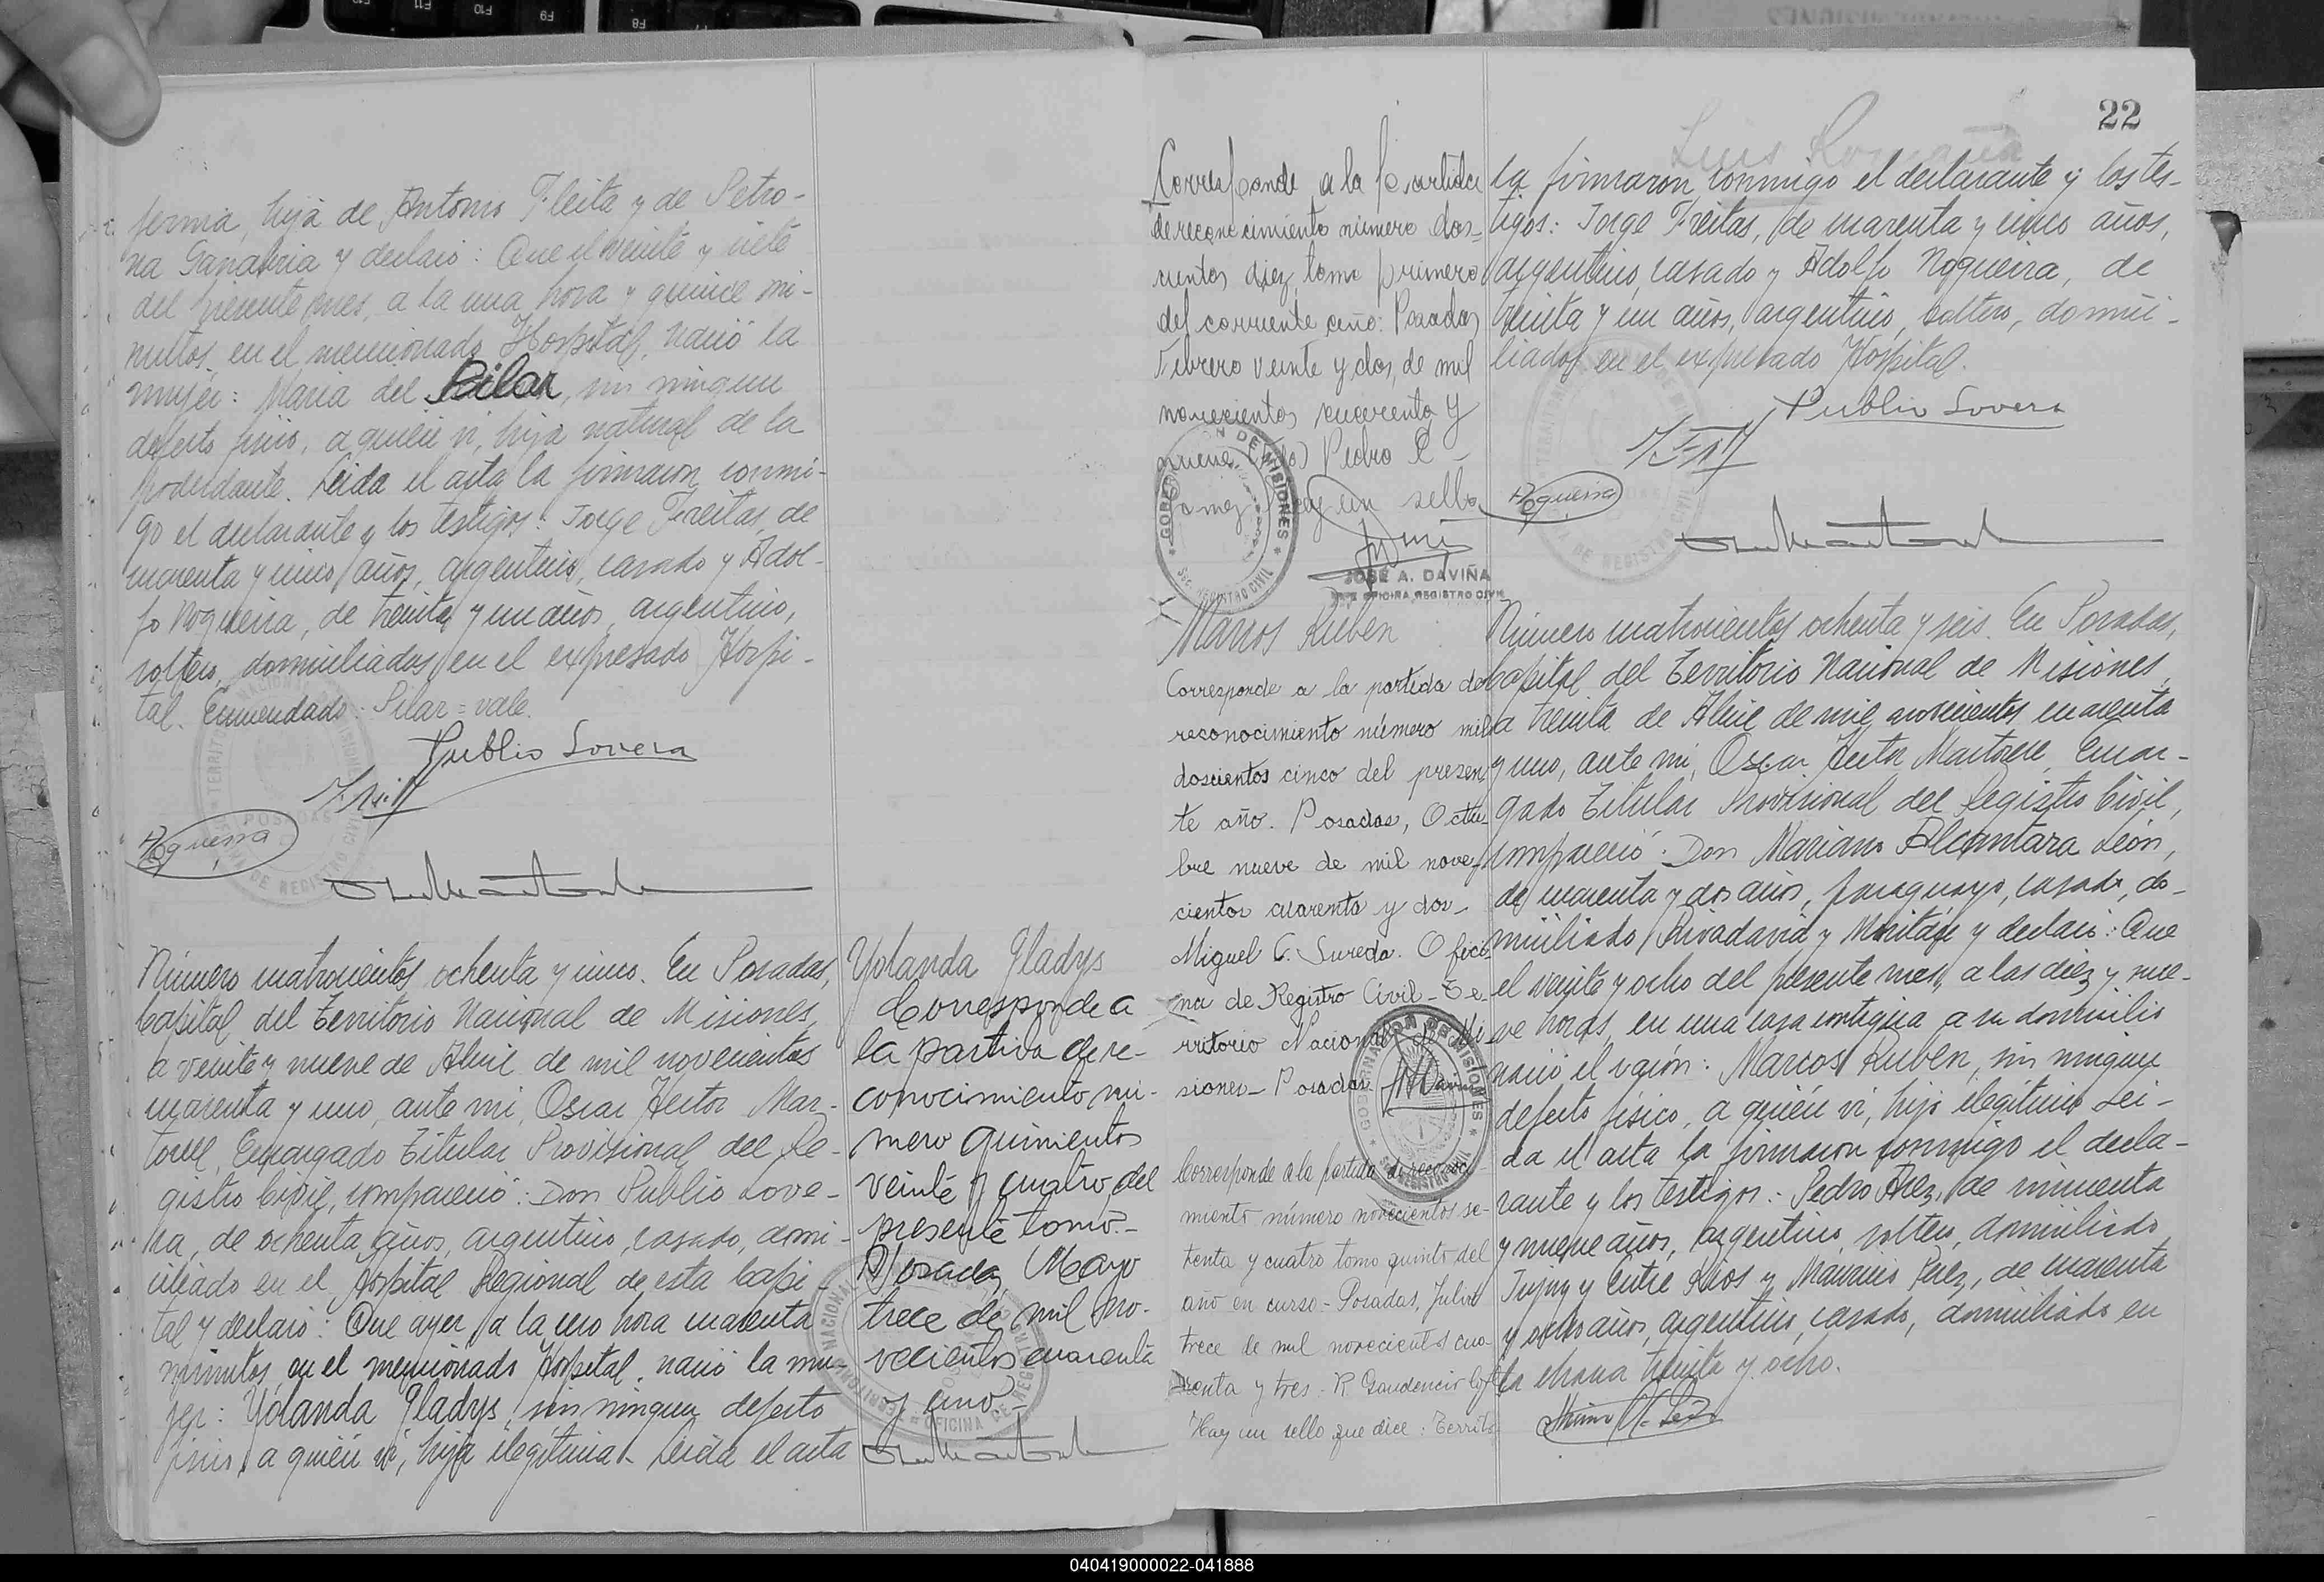 fermia, hija de Antonio Fleita y de Petro-
na Sanabria y declaró: Que el veinte y siete
del presente mes, a la una hora y quince mi-
nutos, en el mencionado Hospital, nació la
mujer: María del Pilar, sin ningun
defecto físico, a quién vi, hija natural de la
poderdante. Leida el acta la firmaron conmi-
go el declarante y los testigos: Jorge Freitas, de
cuarenta y cinco años, argentino, casado y Adol-
fo Nogueira, de treinta y un años, argentino,
soltero, domiciliados en el expresado Hospi-
tal. Enmendado: Pilar = vale.
Publio Lovera
Nogueira
Número cuatrocientos ochenta y cinco. En Posadas,
Capital del Territorio Nacional de Misiones,
a veinte y nueve de Abril de mil novecientos
cuarenta y uno, ante mi, Oscar Hector Mar-
torell, Encargado Titular Provisional del Re-
gistro Civil, compareció: Don Publio Love-
ra, de ochenta años, argentino, casado, domi-
ciliado en el Hospital Regional de esta Capi-
tal y declaró: Que ayer, a la cero hora cuarenta
minutos, en el mencionado Hospital, nació la mu-
jer: Yolanda Gladys, sin ningun defecto
físico, a quién vi, hija ilegítima. Leida el acta
Yolanda Gladys
Corresponde a
la partida de re-
conocimiento nú-
mero quinientos
veinte y cuatro del
presente tomo.-
Posadas, Mayo
trece de mil no-
vecientos cuarenta
y uno.-
22
Luis Romana
Corresponde a la partida
de reconocimiento número dos-
cientos diez tomo primero
del corriente año: Posadas
Febrero veinte y dos, de mil
novecientos cuarenta y
nueve. (Fdo) Pedro R
Gomez hay un sello
GOBERNACION DE MISIONES
Sec. REGISTRO CIVIL
JOSÉ A. DAVIÑA
JEFE OFICINA REGISTRO CIVIL
la firmaron conmigo el declarante y los tes-
tigos: Jorge Freitas, de cuarenta y cinco años,
argentino, casado y Adolfo Nogueira, de
treinta y un años, argentino, soltero, domici-
liados en el expresado Hospital.
Publio Lovera
Nogueira
Marcos Ruben
Corresponde a la partida de
reconocimiento número mil
doscientos cinco del presen-
te año. Posadas, Octu-
bre nueve de mil nove-
cientos cuarenta y dos-
Miguel C. Sureda. Ofici-
na de Registro Civil - Te-
rritorio Nacional de Mi
siones - Posadas
GOBERNACION DE MISIONES
REGISTRO CIVIL
Corresponde a la partida de reconoci-
miento número novecientos se-
tenta y cuatro tomo quinto del
año en curso.- Posadas, Julio
trece de mil novecientos cua-
renta y tres.- R. Gaudencio
Hay un sello que dice: Territo
Número cuatrocientos ochenta y seis. En Posadas,
Capital del Territorio Nacional de Misiones,
a treinta de Abril de mil novecientos cuarenta
y uno, ante mi, Oscar Hector Martorell, Encar-
gado Titular Provisional del Registro Civil,
compareció: Don Mariano Alcantara León,
de cuarenta y dos años, paraguayo, casado, do-
miciliado Rivadavia y y declaró: Que
el veinte y ocho del presente mes, a las diez y nue-
ve horas, en una casa contigua a su domicilio
nació el varón: Marcos Ruben, sin ningun
defecto físico, a quién vi, hijo ilegítimo. Lei-
da el acta la firmaron conmigo el decla-
rante y los testigos: Pedro de cincuenta
y nueve años, argentino, soltero, domiciliado
Jujuy y Entre Rios y Mauricio Perez, de cuarenta
y ocho años, argentino, casado, domiciliado en
la chacra treinta y ocho.
040419000022-041888